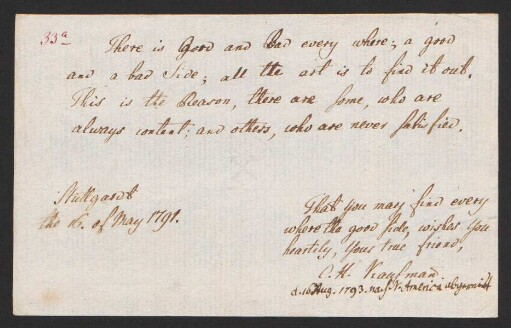 33a
There is Good and Bad every where; a good
and a bad Side; all the art is to find it out.
This is the Reason, there are some, who are
always content; and others, who are never satisfied.
Stuttgardt
the 16. of May 1791.
That you may find every
where the good side, wishes you
heartily, your true friend,
C. H. Kaufman.
d. 16 Aug. 1793 nach N. America abgereiset